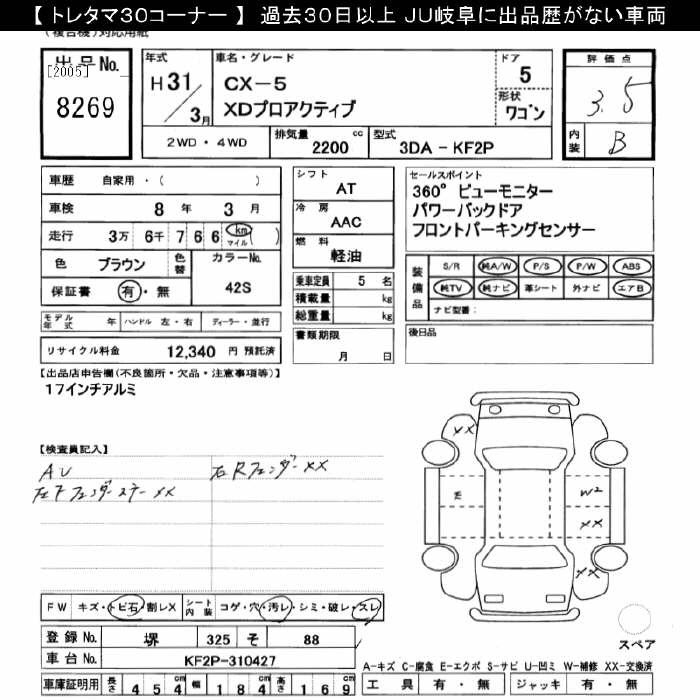 【 トレタマ30コーナー 】 過去30日以上 JU岐阜に出品歴がない車両
(複合機)対応用紙
出品No.
[2005]
8269
年式
H31/3月
車名・グレード
CX-5
XDプロアクティブ
ドア
5
形状
ワゴン
評価点
3.5
内装
B
2WD・4WD
排気量
2200 cc
型式
3DA - KF2P
車歴 自家用・( )
車検 8年 3月
走行 3万 6千 7 6 6 km マイル ( )
色 ブラウン 色替 カラーNo.
保証書 有・無 42S
モデル年式 年 ハンドル 左・右 ディーラー・並行
リサイクル料金 12,340 円 預託済
シフト
AT
冷房
AAC
燃料
軽油
乗車定員 5 名
積載量 kg
総重量 kg
書類期限
月 日
セールスポイント
360°ビューモニター
パワーバックドア
フロントパーキングセンサー
装備品
S/R 純A/W P/S P/W ABS
純TV 純ナビ 革シート 外ナビ エアB
ナビ型番:
後日品
【出品店申告欄(不良箇所・欠品・注意事項等)】
17インチアルミ
【検査員記入】
AU
右Rフェンダー XX
左Fフェンダーステー XX
XX
E
W2
XX
XX
スペア
FW キズ・トビ石・割レX シート内装 コゲ・穴・汚レ・シミ・破レ・スレ
登録No. 堺 325 そ 88
車台No. KF2P-310427
車庫証明用 長さ 4 5 4 cm 幅 1 8 4 cm 高さ 1 6 9 cm
A-キズ C-腐食 E-エクボ S-サビ U-凹ミ W-補修 XX-交換済
工具 有・無 ジャッキ 有・無